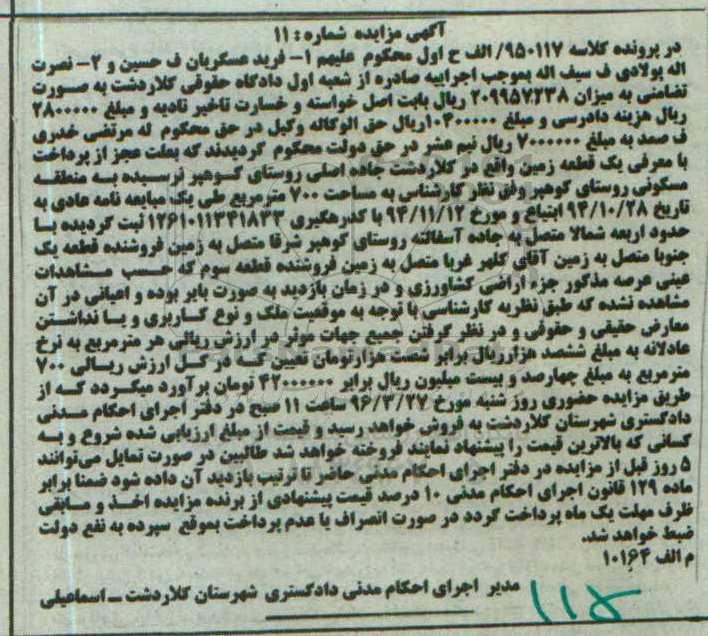 آگهی مزایده شماره : ۱۱
در پرونده کلاسه ۹۵۰۱۱۷/ الف ح اول محکوم علیهم ۱- فرید عسگریان ف حسین و ۲- نصرت
اله پولادی ف سیف اله بموجب اجراییه صادره از شعبه اول دادگاه حقوقی کلاردشت به صورت
تضامنی به میزان ۲۰۹۹۵۷۲۳۸ ریال بابت اصل خواسته و خسارت تاخیر تادیه و مبلغ ۲۸۰۰۰۰۰
ریال هزینه دادرسی و مبلغ ۱۰۴۰۰۰۰۰ریال حق الوکاله وکیل در حق محکوم له مرتضی خدری
ف صمد به مبلغ ۷۰۰۰۰۰۰ ریال نیم عشر در حق دولت محکوم گردیدند که بعلت عجز از پرداخت
با معرفی یک قطعه زمین واقع در کلاردشت جاده اصلی روستای گوهپر نرسیده به منطقه
مسکونی روستای گوهپر وفق نظر کارشناسی به مساحت ۷۰۰ مترمربع طی یک مبایعه نامه عادی به
تاریخ ۹۴/۱۰/۲۸ ابتیاع و مورخ ۹۴/۱۱/۱۲ با کدرهگیری ۱۲۶۱۰۱۱۳۴۱۸۳۳ ثبت گردیده با
حدود اربعه شمالا متصل به جاده آسفالته روستای گوهپر شرقا متصل به زمین فروشنده قطعه یک
جنوبا متصل به زمین آقای کلهر غربا متصل به زمین فروشنده قطعه سوم که حسب مشاهدات
عینی عرصه مذکور جزء اراضی کشاورزی و در زمان بازدید به صورت بایر بوده و اعیانی در آن
مشاهده نشده که طبق نظریه کارشناسی با توجه به موقعیت ملک و نوع کاربری و با نداشتن
معارض حقیقی و حقوقی و در نظر گرفتن جمیع جهات موثر در ارزش ریالی هر مترمربع به نرخ
عادلانه به مبلغ ششصد هزارریال برابر شصت هزارتومان تعیین که در کل ارزش ریالی ۷۰۰
مترمربع به مبلغ چهارصد و بیست میلیون ریال برابر ۴۲۰۰۰۰۰۰ تومان برآورد میگردد که از
طریق مزایده حضوری روز شنبه مورخ ۹۶/۳/۲۷ ساعت ۱۱ صبح در دفتر اجرای احکام مدنی
دادگستری شهرستان کلاردشت به فروش خواهد رسید و قیمت از مبلغ ارزیابی شده شروع و به
کسانی که بالاترین قیمت را پیشنهاد نمایند فروخته خواهد شد طالبین در صورت تمایل می‌توانند
۵ روز قبل از مزایده در دفتر اجرای احکام مدنی حاضر تا ترتیب بازدید آن داده شود ضمنا برابر
ماده ۱۲۹ قانون اجرای احکام مدنی ۱۰ درصد قیمت پیشنهادی از برنده مزایده اخذ و مابقی
ظرف مهلت یک ماه پرداخت گردد در صورت انصراف یا عدم پرداخت بموقع سپرده به نفع دولت
ضبط خواهد شد.
م الف ۱۰۱۶۴
مدیر اجرای احکام مدنی دادگستری شهرستان کلاردشت ــ اسماعیلی